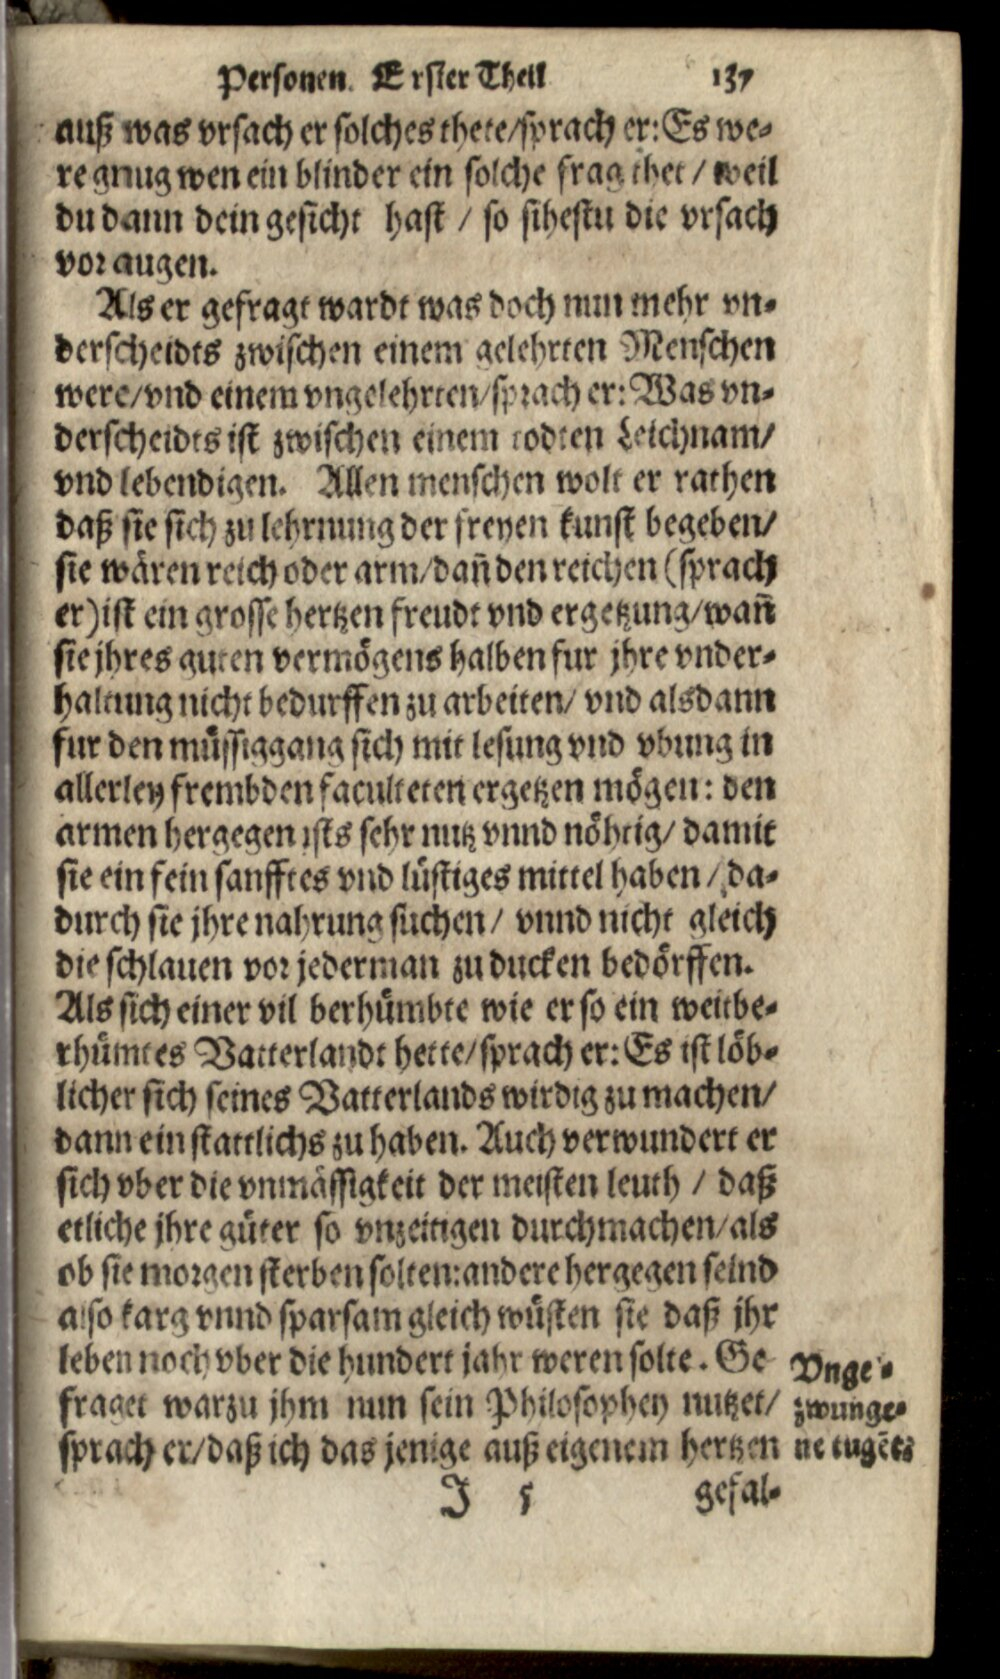 Personen. Erster Theil 137
auß was vrsach er solches thete/sprach er: Es we-
re gnug wen ein blinder ein solche frag thet / weil
du dann dein gesicht hast / so sihestu die vrsach
vor augen.
Als er gefragt wardt was doch nun mehr vn-
derscheidts zwischen einem gelehrten Menschen
were/vnd einem vngelehrten/sprach er: Was vn-
derscheidts ist zwischen einem todten Leichnam/
vnd lebendigen. Allen menschen wolt er rathen
daß sie sich zu lehrnung der freyen kunst begeben/
sie wären reich oder arm/dañ den reichen (sprach
er) ist ein grosse hertzen freudt vnd ergetzung/wañ
sie jhres guten vermögens halben fur jhre vnder-
haltung nicht bedurffen zu arbeiten/ vnd alsdann
fur den müssiggang sich mit lesung vnd vbung in
allerley frembden faculteten ergetzen mögen: den
armen hergegen ists sehr nutz vnnd nöhtig/ damit
sie ein fein sanfftes vnd lüstiges mittel haben / da-
durch sie jhre nahrung suchen/ vnnd nicht gleich
die schlauen vor jederman zu ducken bedörffen.
Als sich einer vil berhümbte wie er so ein weitbe-
rhümtes Vatterlandt hette/sprach er: Es ist löb-
licher sich seines Vatterlands wirdig zu machen/
dann ein stattlichs zu haben. Auch verwundert er
sich vber die vnmässigkeit der meisten leuth / daß
etliche jhre güter so vnzeitigen durchmachen/als
ob sie morgen sterben solten: andere hergegen seind
also karg vnnd sparsam gleich wüsten sie daß jhr
leben noch vber die hundert jahr weren solte. Ge-
fraget warzu jhm nun sein Philosophey nutzet/
sprach er/daß ich das jenige auß eigenem hertzen
Vnge-
zwunge-
ne tugẽt
J 5 gefal-